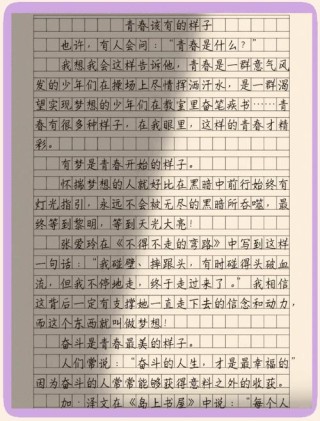 青春该有的样子
也许,有人会问:“青春是什么?”
我想我会这样告诉他,青春是一群意气风
发的少年们在操场上尽情挥洒汗水,是一群渴
望实现梦想的少年们在教室里奋笔疾书……青
春有很多种样子,在我眼里,这样的青春才精
彩。
有梦是青春开始的样子。
怀揣梦想的人就好比在黑暗中前行始终有
灯光指引,永远不会被无尽的黑暗所吞噬,最
终等到黎明,等到天光大亮!
张爱玲在《不得不走的弯路》中写到这样
一句话:“我碰壁、摔跟头,有时碰得头破血
流,但我不停地走,终于走过来了。”我相信
这背后一定有支撑她一直走下去的信念和动力,
而这个东西就叫做梦想!
奋斗是青春最美的样子。
人们常说:“奋斗的人生,才是最幸福的”
因为奋斗的人常常能够获得意料之外的收获。
如 泽文在《岛上书屋》中说:“每个人